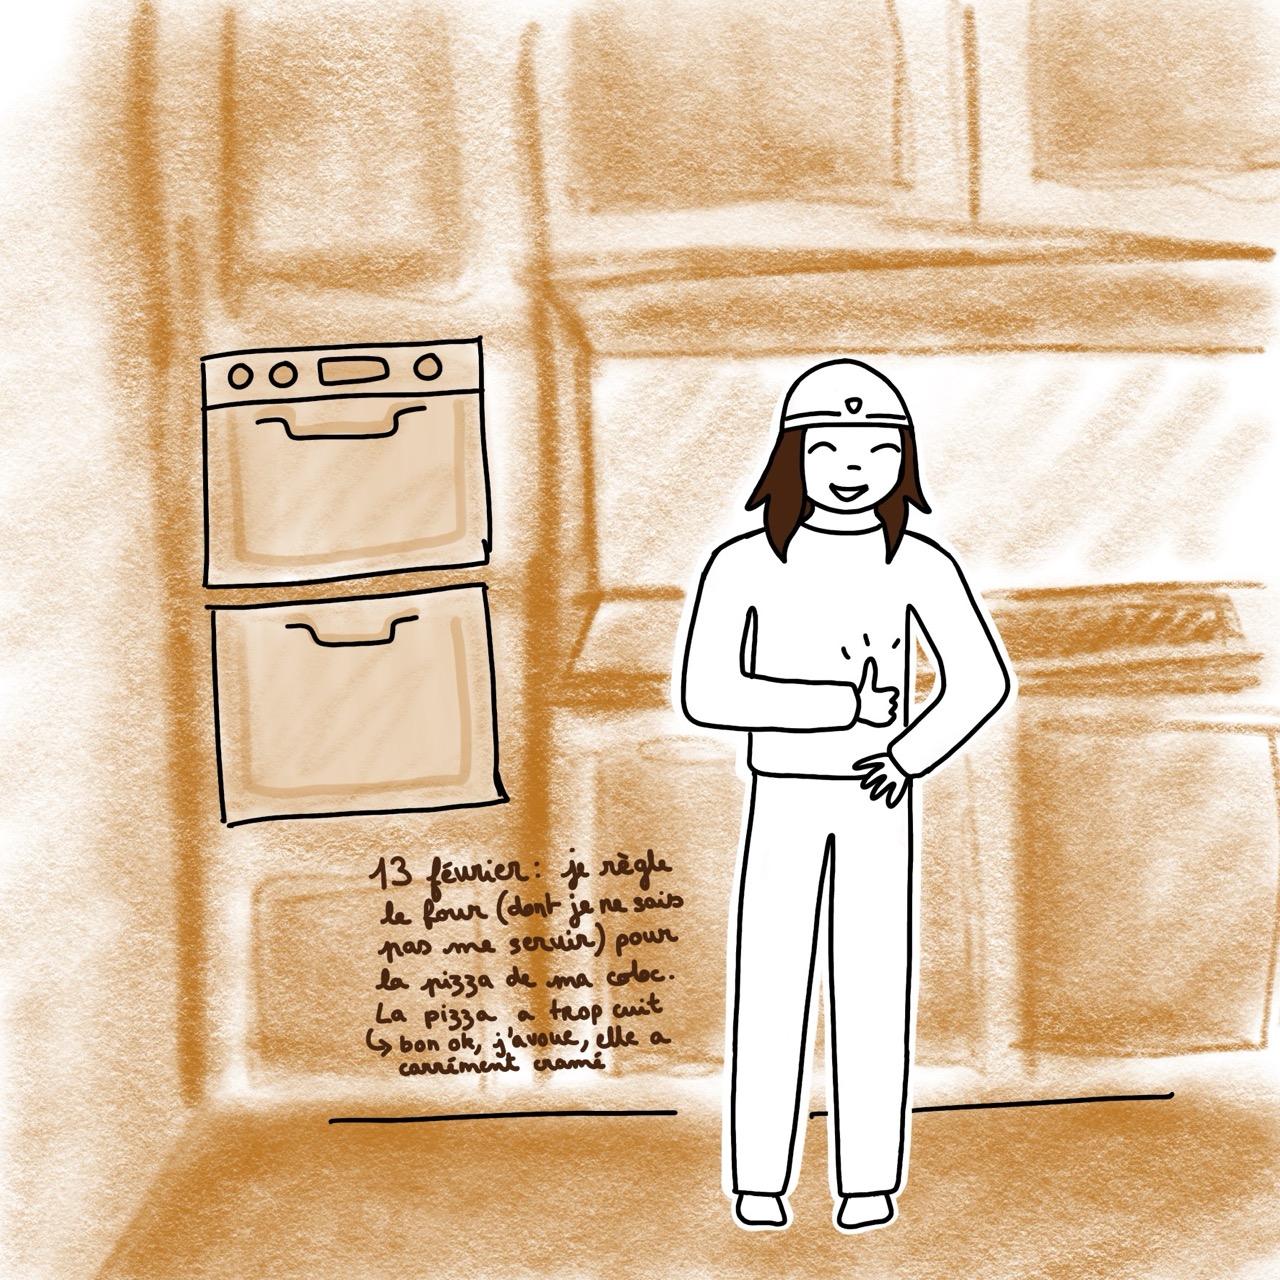 13 février : je règle
le four (dont je ne sais
pas me servir) pour
la pizza de ma coloc.
La pizza a trop cuit
↳ bon ok, j'avoue, elle a
carrément cramé